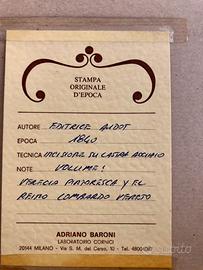 STAMPA
ORIGINALE
D'EPOCA
AUTORE EDITRICE AUDOT
EPOCA 1840
TECNICA INCISIONE SU LASTRA ACCIAIO
NOTE VOLUME!
VENECIA PINTORESCA Y EL
REINO LOMBARDO VENETO
ADRIANO BARONI
LABORATORIO CORNICI
20144 MILANO - Via S. M. del Carso, 10 - Tel.
subito